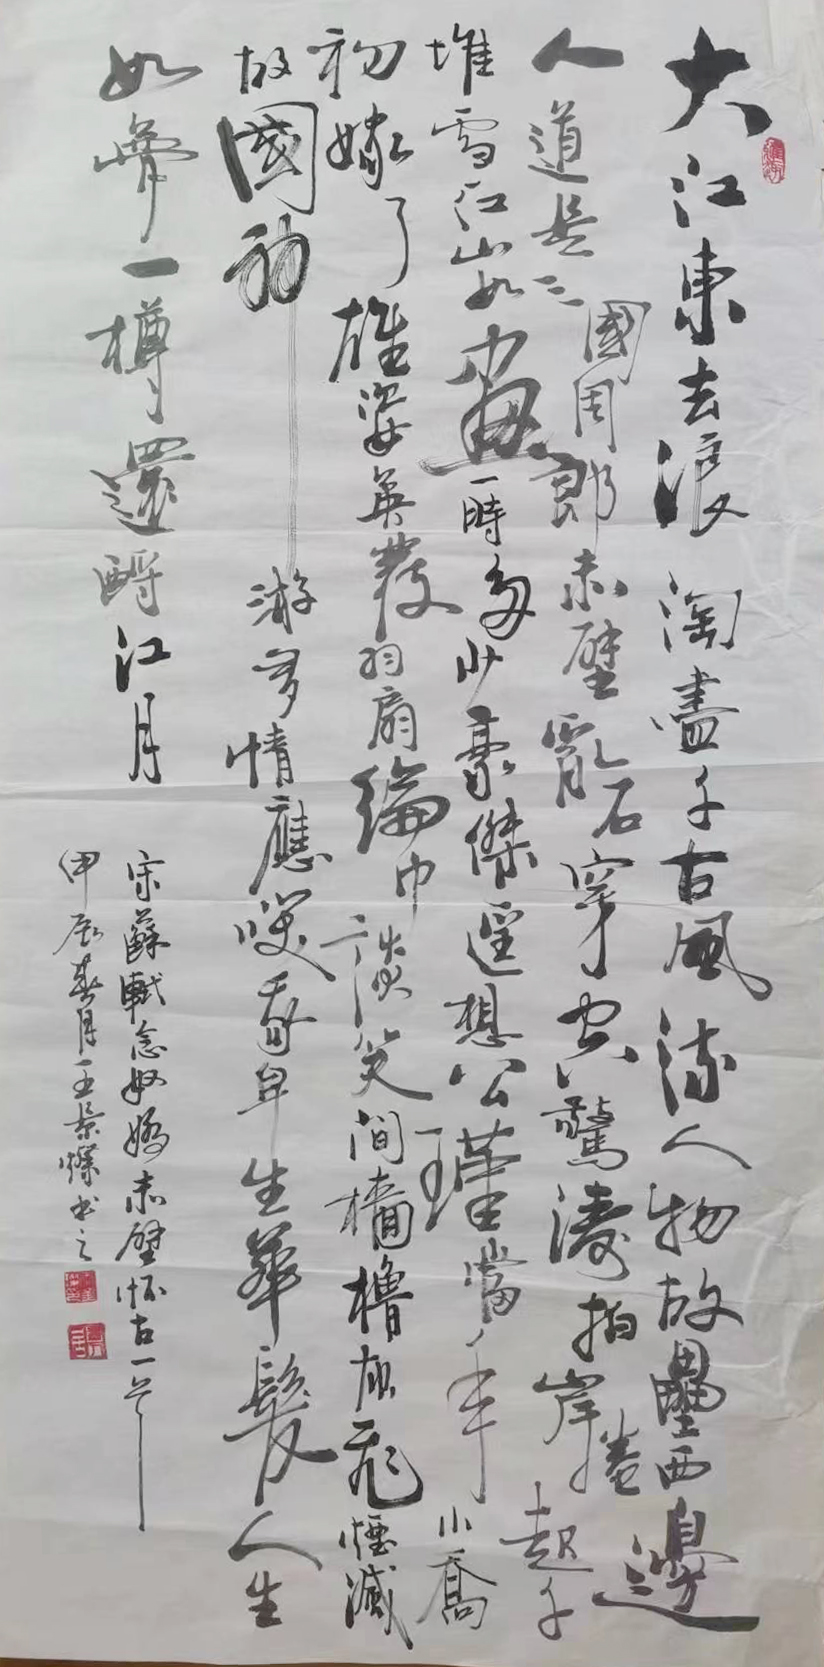 大江東去浪淘盡千古風流人物故壘西邊
人道是三國周郎赤壁亂石穿空驚濤拍岸捲起千
堆雪江山如畫一時多少豪傑遥想公瑾當年小喬
初嫁了雄姿英發羽扇綸巾談笑間檣櫓灰飛煙滅
故國神游多情應笑我早生華髮人生
如夢一樽還酹江月
宋蘇軾念奴嬌赤壁懷古一首
甲辰春月王景燦书之